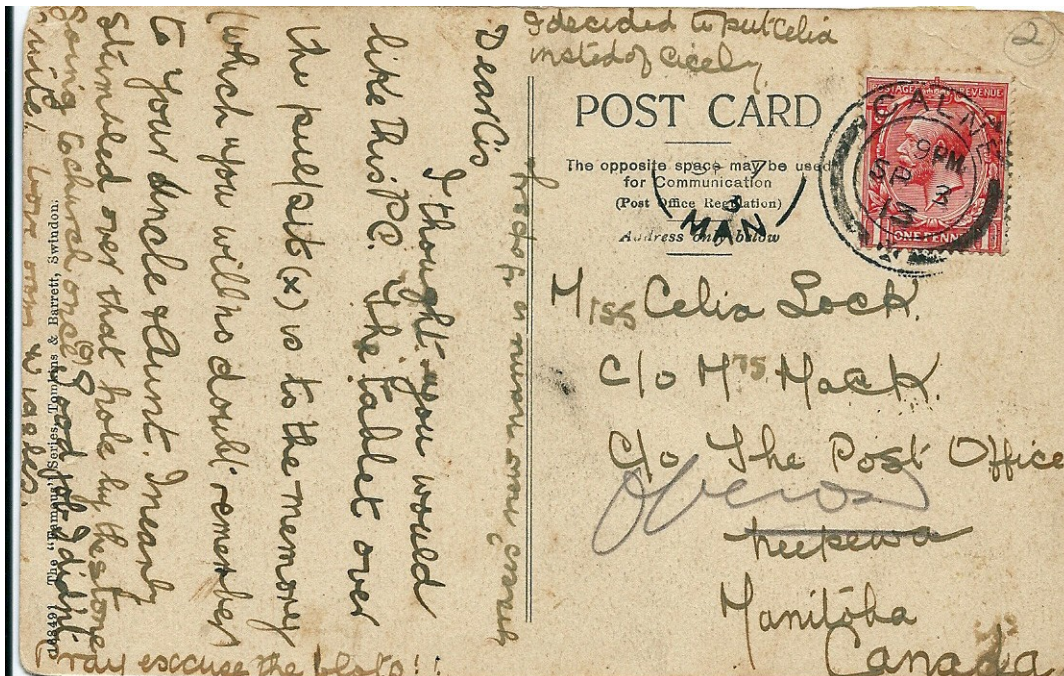 I decided to put Celia
insted of Cicely
2
POST CARD
The opposite space may be used
for Communication
(Post Office Regulation)
Address only below
POSTAGE REVENUE
ONE PENNY
CALNE
9 PM
SP 3
13
MAN
Miss Celia Lock
c/o Mrs Mack
c/o The Post Office
Neepewa
Manitoba
Canada
Dear Cis
I thought you would
like this PC. The tablet over
the pulpit (x) is to the memory
which you will no doubt remember
to your Uncle & Aunt. I nearly
stumbled over that hole by the stone
going to church once. Good job I didn't
Pray excuse the blots!!
16849) The "Famous" Series, Tomkins & Barrett, Swindon.